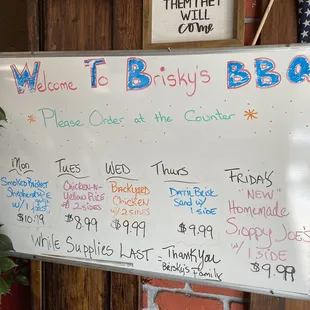 THEM THEY
WILL
come
Welcome To Brisky's BBQ
* Please Order at the Counter *
Mon
Smoked
w/ 1 side
$10.99
Tues
Chicken-N-
Yellow Rice
w/ 2 sides
$8.99
WED
BBQ
Chicken
w/ 2 sides
$9.99
Thurs
Brisk
Sand w/
1 side
$9.99
FRIDAYS
"NEW"
Homemade
Sloppy Joe's
w/ 1 side
$9.99
While Supplies LAST = Thank You
Brisky's Family